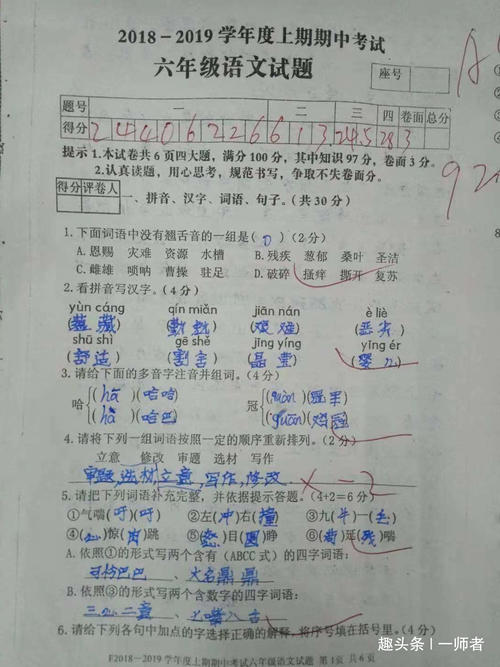 2018-2019学年度上期期中考试
六年级语文试题
座号
题号 一 二 三 四 卷面 总分
得分 2 4 4 0 6 2 2 6 6 1 3 24.5 28 3
提示 1.本试卷共6页四大题，满分100分，其中知识97分，卷面3分。
2.认真读题，用心思考，规范书写，争取不失卷面分。
得分 评卷人
一、拼音、汉字、词语、句子。(共30分)
1.下面词语中没有翘舌音的一组是( D )(2分)
A.恩赐 灾难 资源 水槽 B.残疾 葱郁 桑叶 圣洁
C.雌雄 唢呐 曹操 驻足 D.破碎 搔痒 撕开 复苏
2.看拼音写汉字。(4分)
yùn cáng qín miǎn jiān nán è liè
(蕴藏) (勤勉) (艰难) (恶劣)
shū shì gē shě jīng yíng yīng ér
(舒适) (割舍) (晶莹) (婴儿)
3.请给下面的多音字注音并组词。(4分)
哈 (hā)(哈哈) 冠 (guàn)(冠军)
(hǎ)(哈巴) (guān)(鸡冠)
4.请将下列一组词语按照一定的顺序重新排列。(2分)
立意 修改 审题 选材 写作
审题,选材,立意,写作,修改
-2
5.请把下列词语补充完整，并依据提示答题。(4+2=6分)
①气喘(吁)(吁) ②左(冲)右(撞) ③九(牛)一(毛)
④(心)惊(肉)跳 ⑤(怒)目(圆)睁 ⑥(苟)延(残)喘
A.依照①的形式写两个含有(ABCC式)的四字词语:
可怜巴巴、大名鼎鼎
B.依照③的形式写两个含数字的四字词语:
三心二意、七嘴八舌
6.请给下列各句中加点的字选择正确的解释,将序号填在括号里。(4分)
F2018-2019学年度上期期中考试六年级语文试题 第1页 共6页
趣头条！一师者